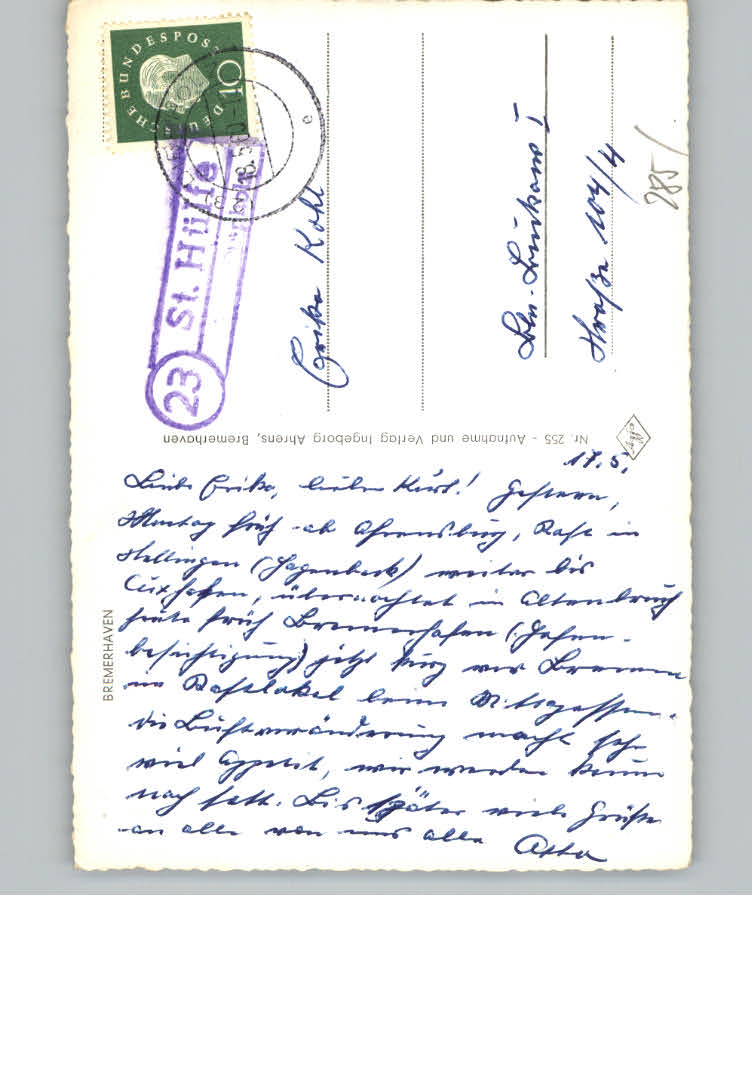 DEUTSCHE BUNDESPOST
10
18.5.60
23
St. Hülfe
Erika Kohl
Bln.-Buckow I
Straße 104/4
285/
Nr. 255 - Aufnahme und Verlag Ingeborg Ahrens, Bremerhaven
Agfa
BREMERHAVEN
17.5.
Liebe Erika, lieber Kurt! Gestern,
Montag früh ab Ahrensburg, Rast in
Stellingen (Hagenbeck) weiter bis
Cuxhafen, übernachtet in Altenbruch
heute früh Bremerhafen (Hafen-
besichtigung) jetzt kurz vor Bremen
im Rastlokal beim Mittagessen.
Die Luftveränderung macht sehr
viel Appetit, wir werden kaum
noch satt. Bis später viele Grüße
an alle von uns alle